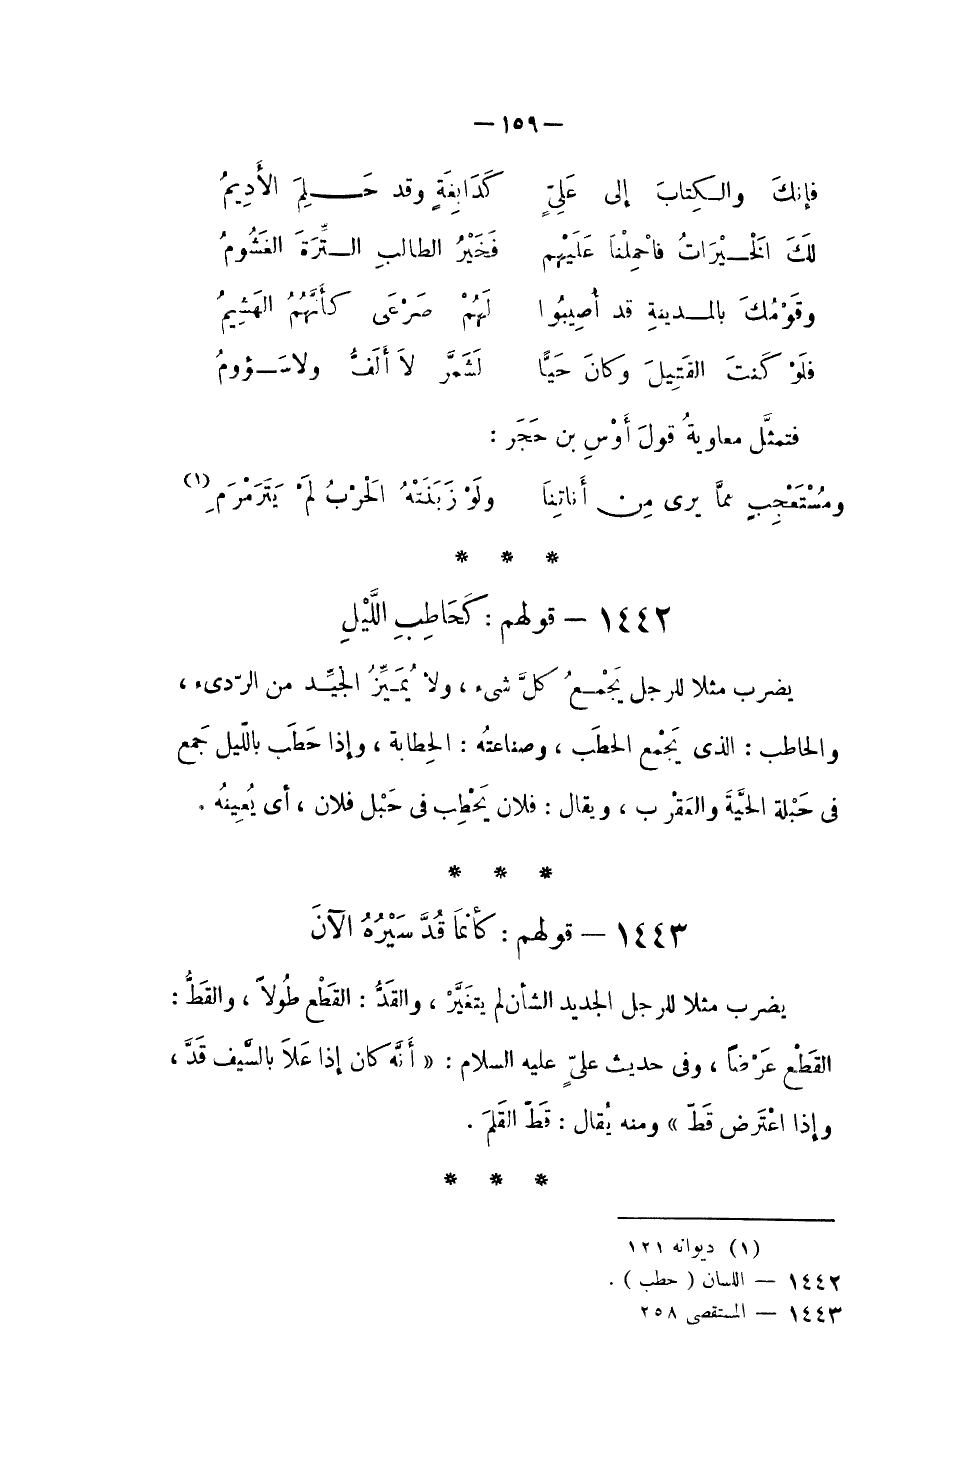 — ١٥٩ —
فإنكَ والـكِتابَ إلى عَلِيٍّ كَدَابِغَةٍ وقد حَـــلِمَ الأَدِيمُ
لكَ الخَـيْرَاتُ فاحْمِلْنا عَلَيْهم فَخَيْرُ الطالبِ الـتِّرَةَ الغَشُومُ
وقَوْمُكَ بالمـدينةِ قد أُصِيبُوا لَهُمْ صَرْعَى كأَنَّهُمُ الهَشِيمُ
فلَوْ كَنتَ القَتِيلَ وكانَ حَيًّا لَشَمَّرَ لاَ أَلَفُّ ولاسَـؤومُ
فتمثَّل معاويةُ قولَ أَوْسِ بن حَجَر :
ومُسْتَعْجِبٍ ممَّا يرى مِن أَناتِنَا ولَوْ زَبَنَتْهُ الحَرْبُ لَمْ يَتَرَمْرَمِ (١)
* * *
١٤٤٢ — قولهم : كَحَاطِبِ اللَّيْلِ
يضرب مثلا للرجل يَجْمـعُ كلَّ شىء ، ولا يُمَـيِّزُ الجيِّـد من الرّدىء ،
والحاطب : الذى يَجْمع الحطَب ، وصناعتهُ : الحِطابة ، وإذا حَطَب باللّيل جَمع
فى حَبْلة الحيَّةَ والعَقرْب ، ويقال : فلان يَحْطِب فى حَبْل فلان ، أى يُعِينهُ .
* * *
١٤٤٣ — قولهم : كأنمَا قُدَّ سَيْرُهُ الآنَ
يضرب مثلا للرجل الجديد الشأن لم يتغَيَّرْ ، والقَدُّ : القَطْع طُولاً ، والقَطُّ :
القَطْع عَرْضاً ، وفى حديث علىٍّ عليه السلام : « أَنَّه كان إذا عَلاَ بالسَّيف قَدَّ ،
وإذا اعْتَرض قَطّ » ومنه يُقال : قَطّ القَلَمَ .
* * *
(١) ديوانه ١٢١
١٤٤٢ — اللسان ( حطب ) .
١٤٤٣ — المستقصى ٢٥٨